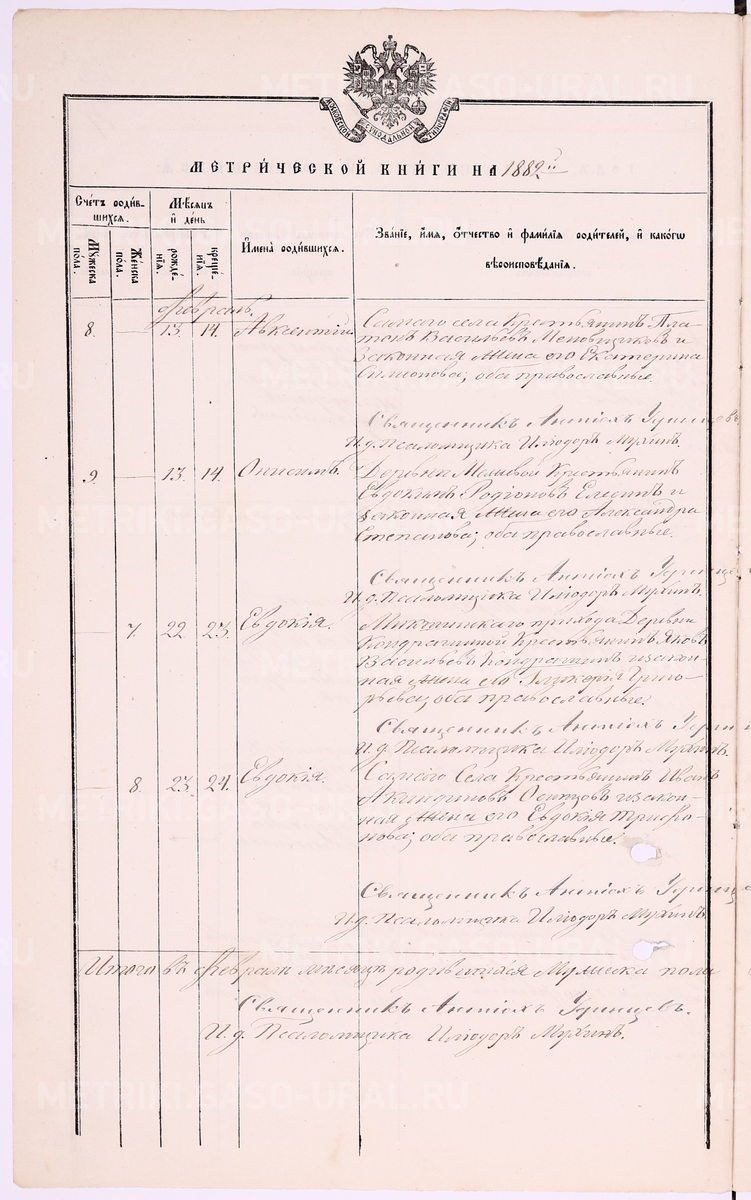 МОСКОВСКОЙ СѴНОДАЛЬНОЙ ТИПОГРАФІИ
МЕТРИ́ЧЕСКОЙ КНИ́ГИ НА 1882й
Сче́тъ роди́в-
шихся.
Мужеска
по́ла.
Же́нска
пола.
Мѣсяцъ
и́ де́нь
рожде́-
нїя.
креще́-
нїя.
И҆мена̀ роди́вшихся.
Зва́нїе, и҆́мя, ѻ҆́тчество и҆ фами́лїя роди́телей, и҆ како́гѡ
вѣроисповѣ́данїя.
Февраль
8. — 13. 14. Авксентій
Самаго села Крестьянинъ Пла-
тонъ Васильевъ Меновщиковъ и
законная жена его Екатерина
Симионова; оба православные.
Священникъ Антіохъ
И.д. Псаломщика Иліодоръ Мухинъ.
9. — 13. 14. Онисимъ.
Деревни Крестьянинъ
Евдокимъ Родіоновъ и
законная жена его Александра
Степанова; оба православные.
Священникъ Антіохъ
И.д. Псаломщика Иліодоръ Мухинъ.
— 7. 22. 23. Евдокія.
прихода Деревни
Кондрашиной Крестьянинъ Яковъ
Васильевъ Кондрашинъ и закон-
ная жена его Гликерія Григо-
рьева; оба православные.
Священникъ Антіохъ
И.д. Псаломщика Иліодоръ Мухинъ.
— 8. 23. 24. Евдокія.
Самаго Села Крестьянинъ Иванъ
Акиндиновъ Осинцовъ и закон-
ная жена его Евдокія Трифо-
нова; оба православные.
Священникъ Антіохъ
И.д. Псаломщика Иліодоръ Мухинъ.
Итого въ Февралѣ мѣсяцѣ родившихся Мужеска пола
Священникъ Антіохъ
И.д. Псаломщика Иліодоръ Мухинъ.
METRIKI.GASO-URAL.RU